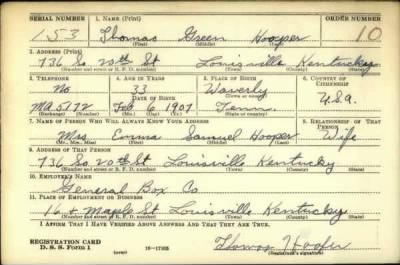 SERIAL NUMBER 1. NAME (Print) ORDER NUMBER
153 Thomas Green Hooper 10
(First) (Middle) (Last)
2. ADDRESS (Print)
736 So 20th St Louisville Kentucky
(Number and street or R. F. D. number) (Town) (County) (State)
3. TELEPHONE 4. AGE IN YEARS 5. PLACE OF BIRTH 6. COUNTRY OF CITIZENSHIP
No 33 Waverly
DATE OF BIRTH
MA 5172 Feb 6 1907 Tenn. U.S.a.
(Exchange) (Number) (Mo.) (Day) (Yr.) (State or country)
7. NAME OF PERSON WHO WILL ALWAYS KNOW YOUR ADDRESS 8. RELATIONSHIP OF THAT PERSON
Mrs Emma Samuel Hooper Wife
(Mr., Mrs., Miss) (First) (Middle) (Last)
9. ADDRESS OF THAT PERSON
736 So. 20th St Louisville Kentucky
(Number and street or R. F. D. number) (Town) (County) (State)
10. EMPLOYER'S NAME
General Box Co
11. PLACE OF EMPLOYMENT OR BUSINESS
16 + Maple St Louisville Kentucky
(Number and street or R. F. D. number) (Town) (County) (State)
I AFFIRM THAT I HAVE VERIFIED ABOVE ANSWERS AND THAT THEY ARE TRUE.
REGISTRATION CARD
D. S. S. Form 1 (over) 16—17105 Thomas Hooper
(Registrant's signature)